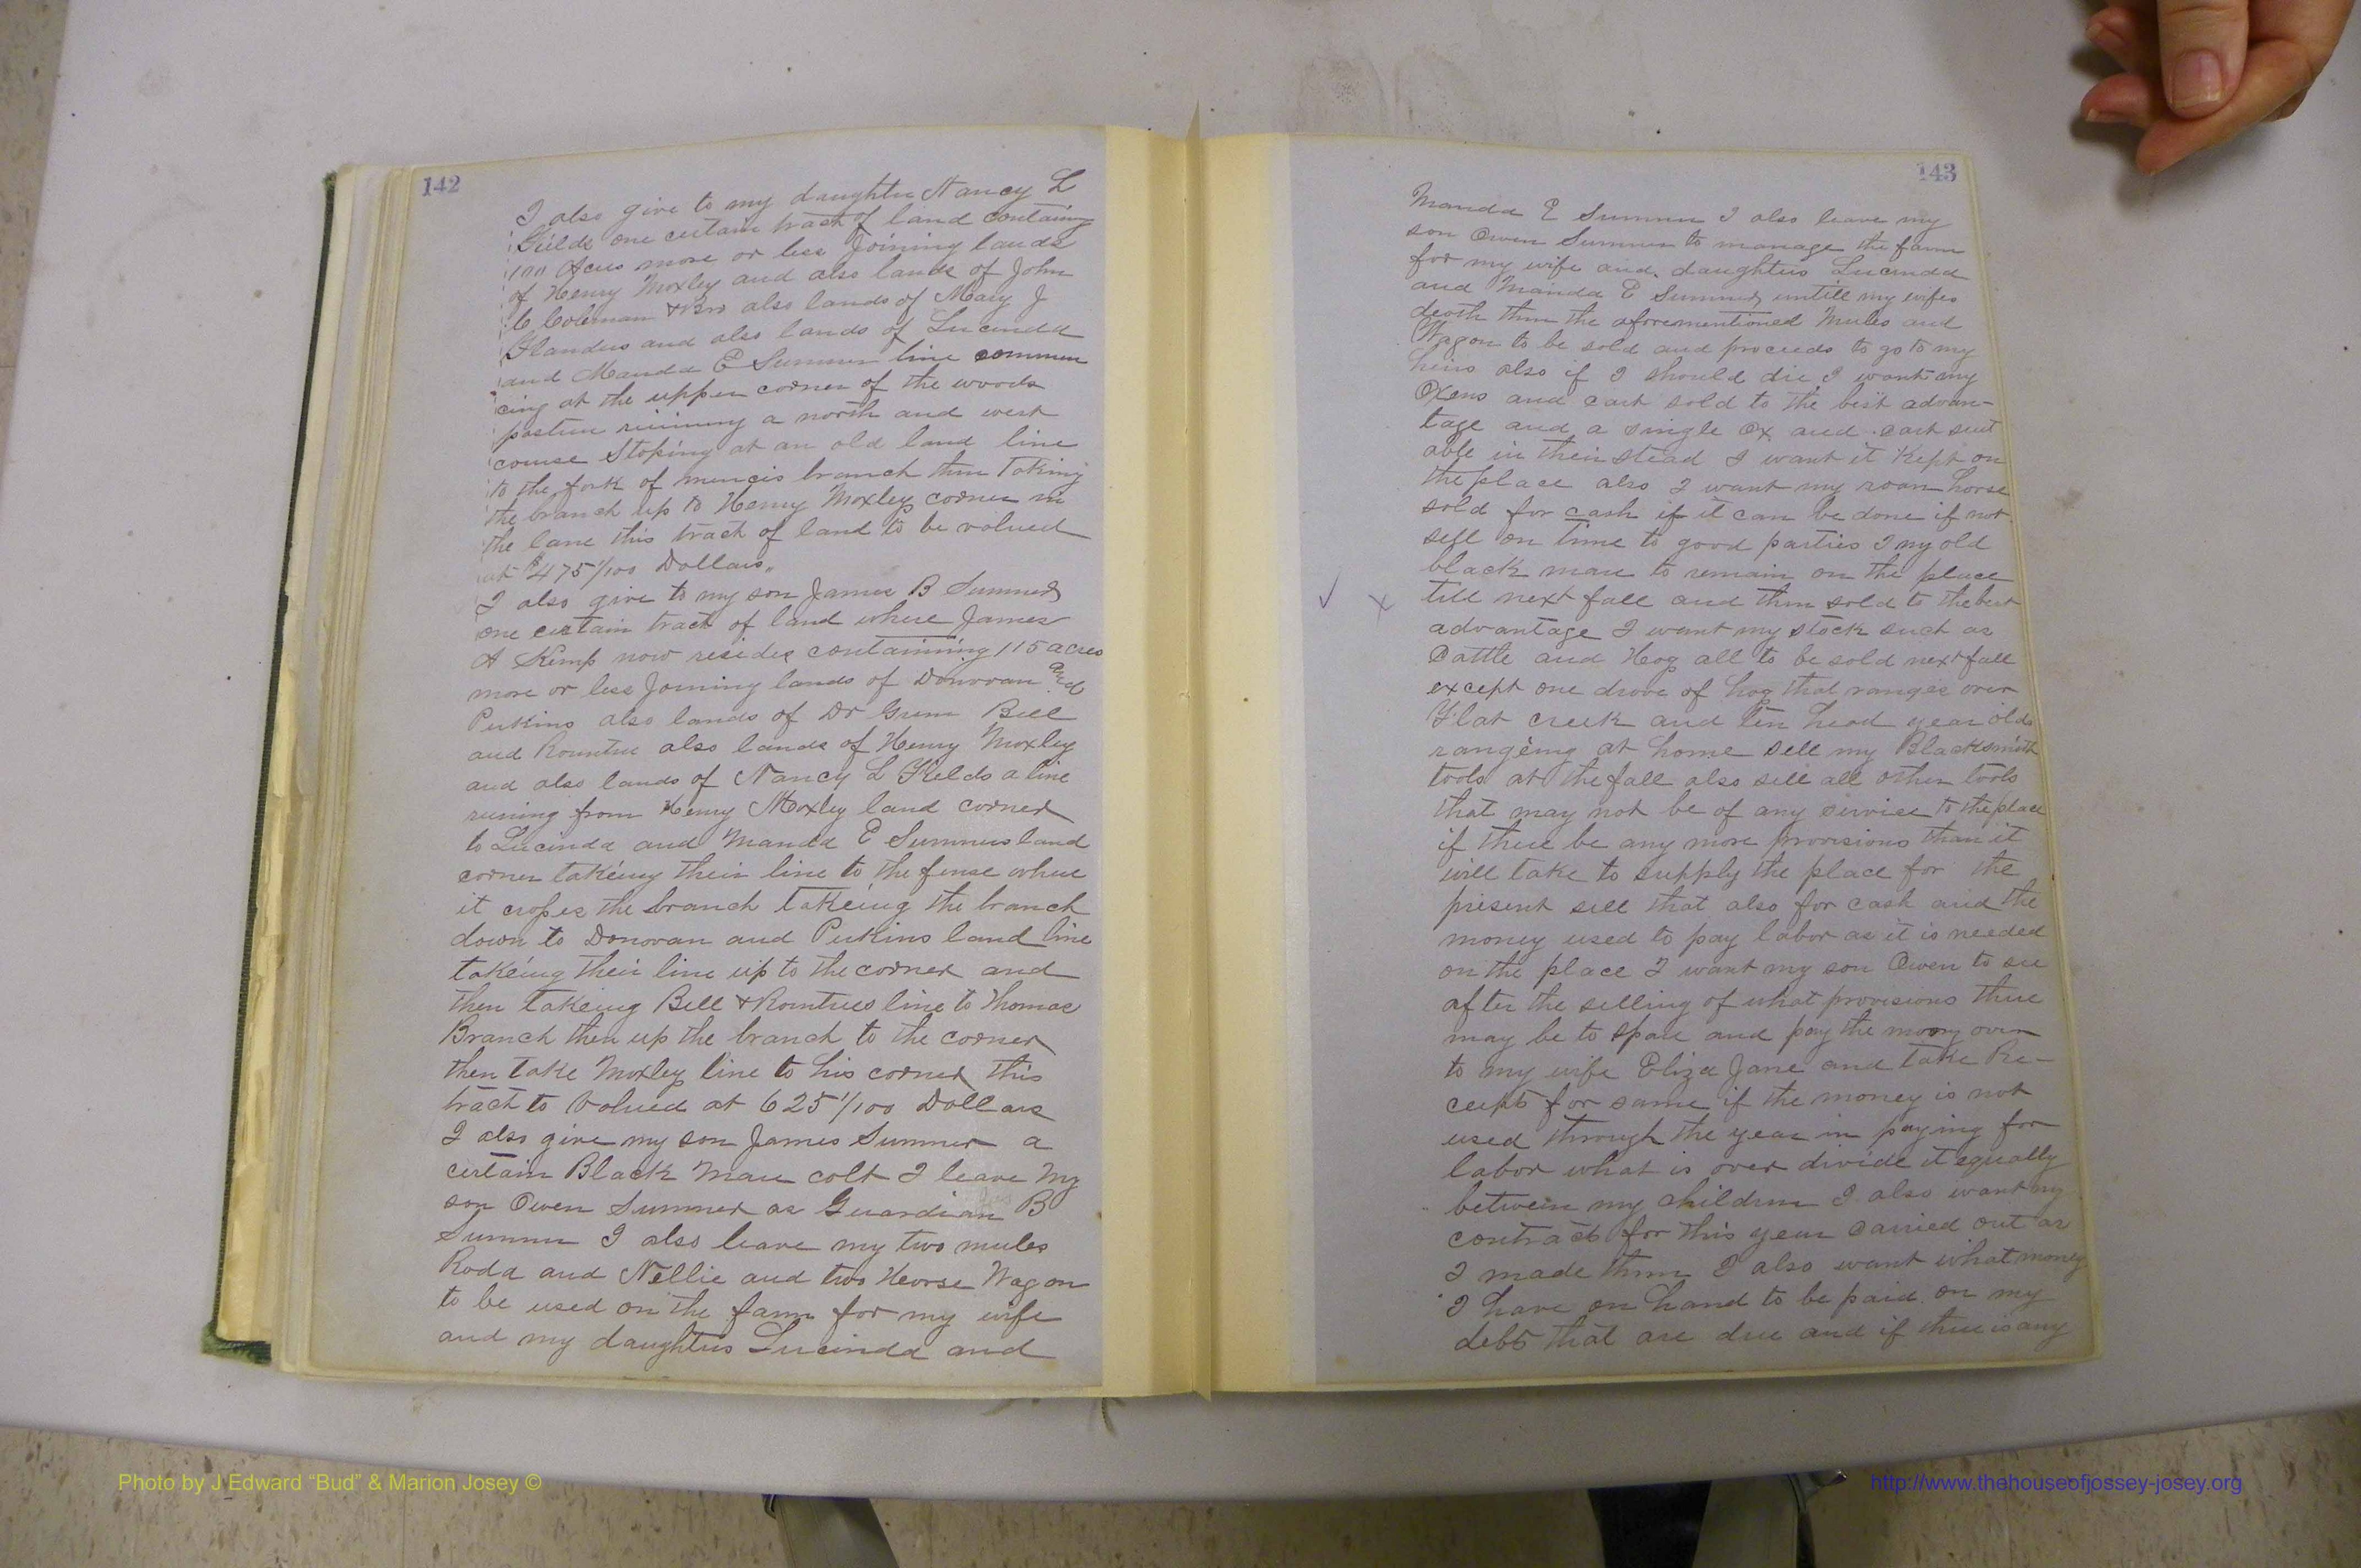 142
I also give to my daughter Nancy L
Fields one certain tract of land containing
100 Acres more or less Joining lands
of Henry Moxley and also lands of John
C Coleman & Bro also lands of Mary J
Flanders and also lands of Lucinda
and Manda E Sumner line commen
cing at the upper corner of the woods
pasture running a north and west
course Stoping at an old land line
to the fork of branch then Taking
the branch up to Henry Moxley corner in
the lane this tract of land to be valued
at $475 1/100 Dollars.
I also give to my son James B Sumner
one certain tract of land where James
A Kemp now resides containing 115 acres
more or less Joining lands of Donovan and
Perkins also lands of Dr Green Bell
and Rountree also lands of Henry Moxley
and also lands of Nancy L Fields a line
runing from Henry Moxley land corner
to Lucinda and Manda E Sumners land
corner takeing their line to the fense where
it croses the branch takeing the branch
down to Donovan and Perkins land line
takeing their line up to the corner and
then takeing Bell & Rountrees line to Thomas
Branch then up the branch to the corner
then take Moxley line to his corner this
tract to valued at 625 1/100 Dollars
I also give my son James Sumner a
certain Black Mare colt I leave My
son Owen Sumner as Guardian B
Sumner I also leave my two mules
Roda and Nellie and two Heorse Wagon
to be used on the farm for my wife
and my daughters Lucinda and
143
Manda E Sumner I also leave my
son Owen Sumner to manage the farm
for my wife and daughters Lucinda
and Manda E Sumner untill my wifes
death then the aforementioned Mules and
Wagon to be sold and proceeds to go to my
heirs also if I should die I want my
Oxens and cart sold to the best advan-
tage and a single Ox and cart suit
able in their stead I want it Kept on
the place also I want my roan horse
sold for cash if it can be done if not
sell on time to good parties I my old
black mare to remain on the place
till next fall and then sold to the best
advantage I want my stock such as
Cattle and Hog all to be sold next fall
except one drove of hog that ranges over
Flat creek and ten head year olds
rangeing at home sell my Blacksmith
tools at the fall also sell all other tools
that may not be of any service to the place
if there be any more provisions than it
will take to supply the place for the
present sell that also for cash and the
money used to pay labor as it is needed
on the place I want my son Owen to see
after the selling of what provisions there
may be to spare and pay the money over
to my wife Eliza Jane and take Re-
ceipts for same if the money is not
used through the year in paying for
labor what is over divide it equally
between my children I also want my
contracts for this year carried out as
I made them I also want what money
I have on hand to be paid on my
debts that are due and if there is any
Photo by J Edward “Bud” & Marion Josey ©
http://www.thehouseofjossey-josey.org